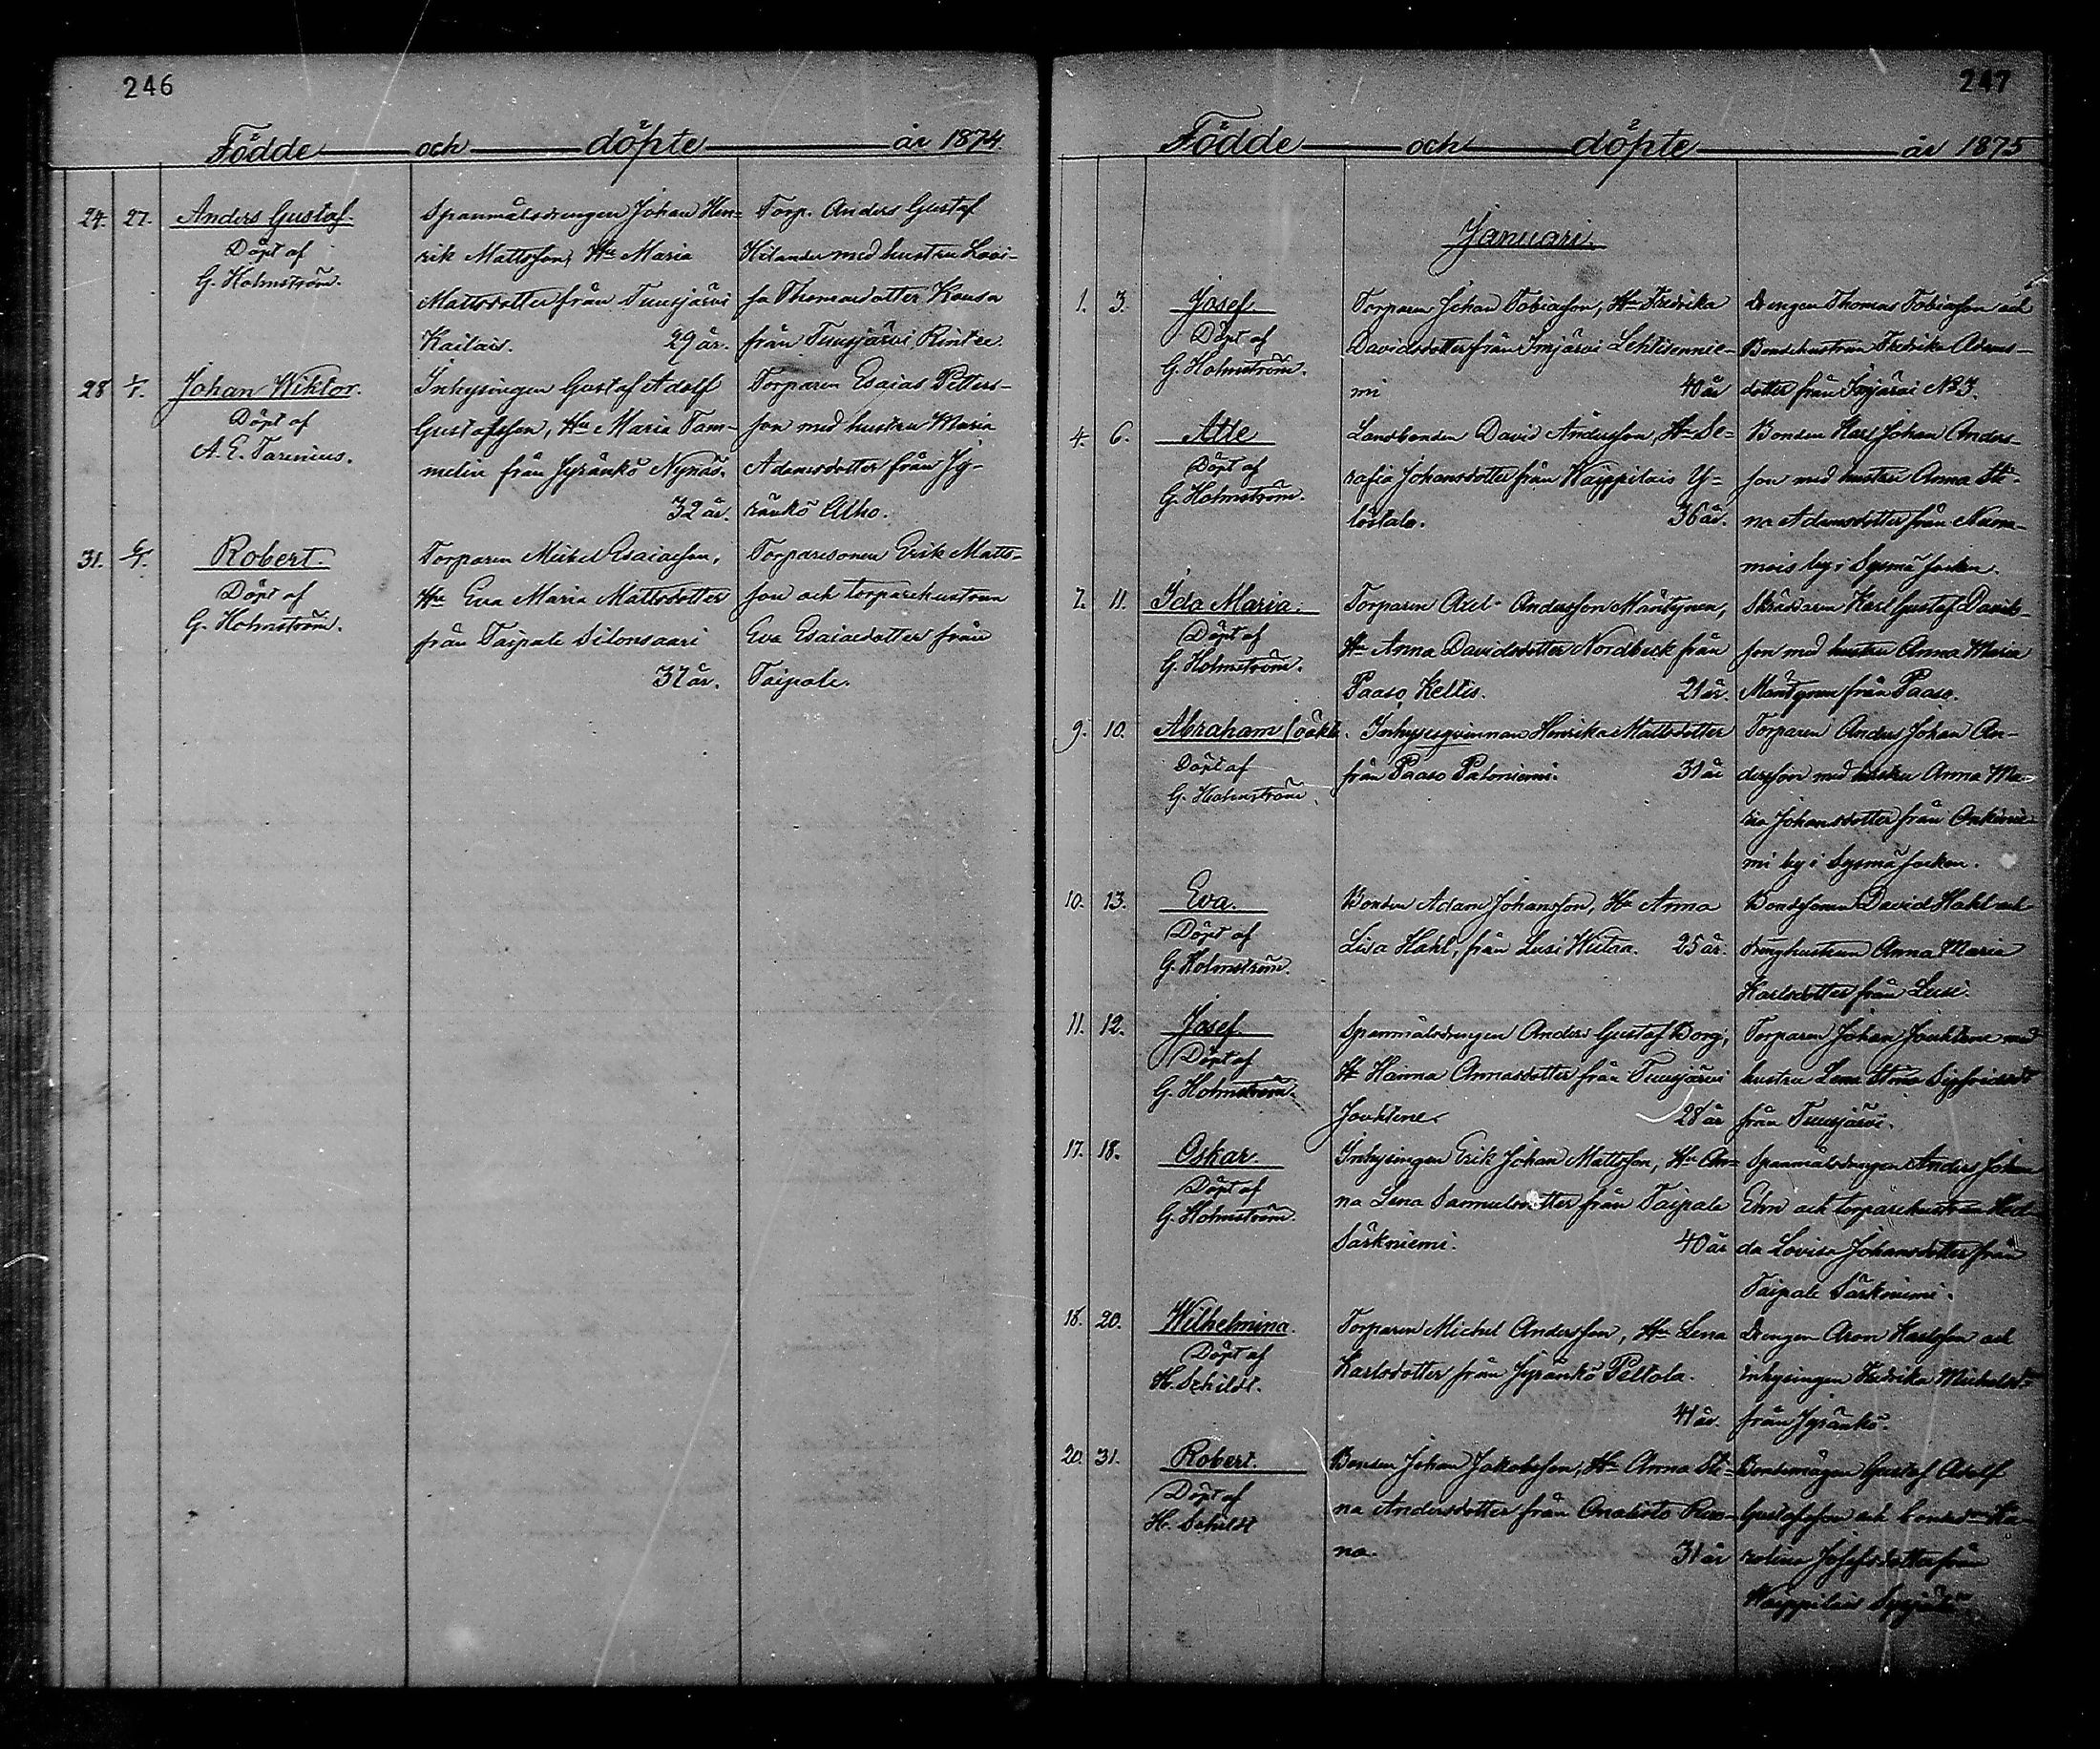 246
Födde och döpte år 1874
24. 27. Anders Gustaf.
Döpt af
G. Holmström.
Spanmålsdrengen Johan Hen=
rik Mattsson, Hu Maria
Mattsdotter från Tuusjärvi
Kailais. 29 år.
Torp. Anders Gustaf
Hilander med hustru Lovi-
sa Thomasdotter Kausa
från Tuusjärvi Rintee.
28 1/1. Johan Wiktor.
Döpt af
A. E. Tarenius.
Inhysingen Gustaf Adolf
Gustafsson, Hu Maria Tam-
melin från Jyränkö Nynäs.
32 år.
Torparen Esaias Petters-
son med hustru Maria
Adamsdotter från Jy-
ränkö Alho.
31. 6/1. Robert.
Döpt af
G. Holmström.
Torparen Michel Esaiasson,
Hu Eva Maria Mattsdotter
från Taipale Silonsaari
37 år.
Torparesonen Erik Matts-
son och torparehustrun
Eva Esaiasdotter från
Taipale.
247
Födde och döpte år 1875
Januari.
1. 3. Josef.
Döpt af
G. Holmström.
Torparen Johan Tobiasson, Hu Fredrika
Davidsdotter från Imjärvi Lehtisennie-
mi 40 år
Drengen Thomas Tobiasson och
Bondehustrun Fredrika Adams-
dotter från Imjärvi No 3.
4. 6. Atte
Döpt af
G. Holmström.
Landbonden David Andersson, Hu Se=
rafia Johansdotter från Waippilais Y=
löstalo. 36 år.
Bonden Karl Johan Anders-
son med hustru Anna Sti-
na Adamsdotter från
by i Sysmä socken.
7. 11. Ida Maria.
Döpt af
G. Holmström.
Torparen Axel Andersson Mäntynen,
Hu Anna Davidsdotter Nordbeck från
Paaso Keltis. 21 år.
Skräddaren Karl Gustaf Davids-
son med hustru Anna Maria
Mäntynen från Paaso.
9. 10. Abraham (oäkt).
Döpt af
G. Holmström.
Inhysesqvinnan Henrika Mattsdotter
från Paaso Paloniemi. 31 år
Torparen Anders Johan An-
dersson med hustru Anna Ma-
ria Johansdotter från Onkinie
mi by i Sysmä socken.
10. 13. Eva.
Döpt af
G. Holmström.
Bonden Adam Johansson, Hu Anna
Lisa Hahl, från Lusi Wiitaa. 25 år.
Bondsonen David Hahl och
drenghustrun Anna Maria
Karlsdotter från Lusi.
11. 12. Josef.
Döpt af
G. Holmström.
Spanmålsdrengen Anders Gustaf Borg,
Hu Hanna Annasdotter från Tuusjärvi
Jouhtine. 28 år
Torparen Johan Jouhtine med
hustru Lena Stina Sigfridsdr
från Tuusjärvi.
17. 18. Oskar.
Döpt af
G. Holmström.
Inhysingen Erik Johan Mattsson, Hu An=
na Lena Samuelsdotter från Taipale
Särkniemi. 40 år
Spanmålsdrengen Anders Johan
och torparehustrun Hed-
da Lovisa Johansdotter från
Taipale Särkniemi.
18. 20. Wilhelmina.
Döpt af
H. Schildt.
Torparen Michel Andersson, Hu Lena
Karlsdotter från Jyränkö Peltola.
41 år.
Drengen Aron Karlsson och
inhysingen Fredrika Michelsdr
från Jyränkö.
20. 31. Robert.
Döpt af
H. Schildt
Bonden Johan Jakobsson, Hu Anna Sti-
na Andersdotter från Onalisto Rau-
na. 31 år
Bondemågen Gustaf Adolf
Gustafsson och Ka-
rolina Josefsdotter från
Waippilais